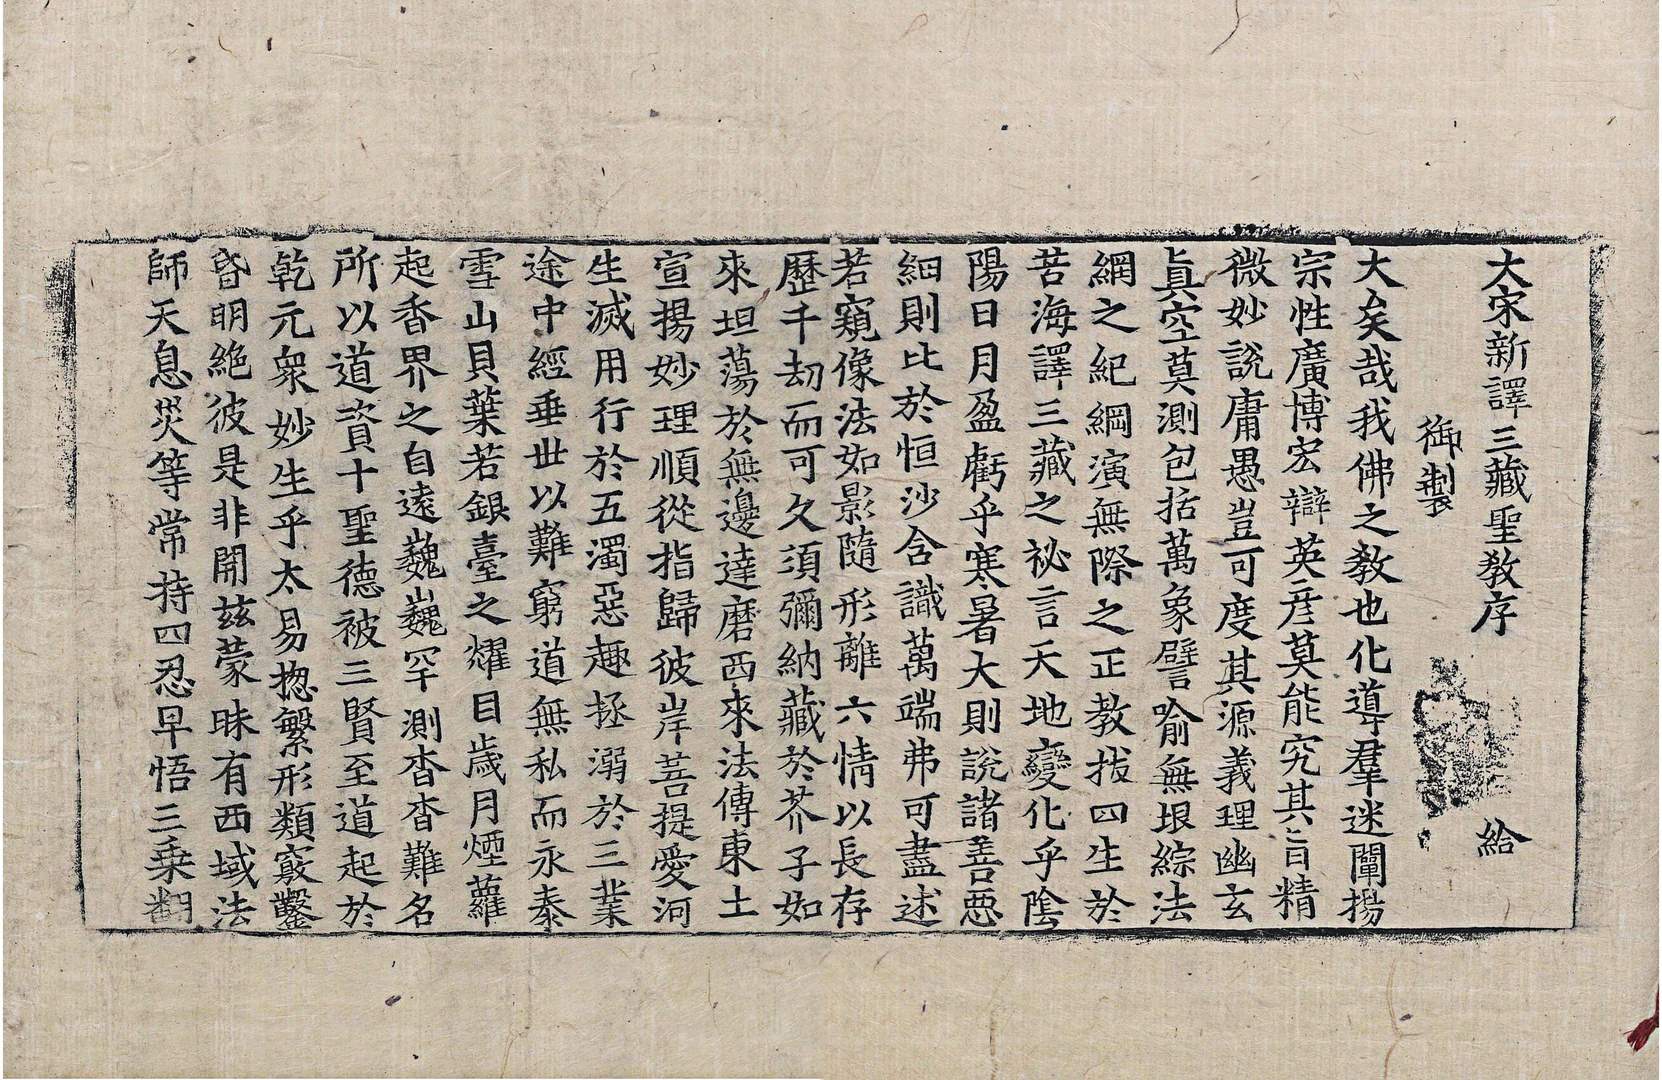 大宋新譯三藏聖教序 給
御製
大矣哉我佛之教也化導羣迷闡揚
宗性廣博宏辯英彦莫能究其旨精
微妙說庸愚豈可度其源義理幽玄
眞空莫測包括萬象譬喻無垠綜法
網之紀綱演無際之正教拔四生於
苦海譯三藏之祕言天地變化乎陰
陽日月盈虧乎寒暑大則說諸善惡
細則比於恒沙含識萬端弗可盡述
若窺像法如影隨形離六情以長存
歷千劫而可久須彌納藏於芥子如
來坦蕩於無邊達磨西來法傳東土
宣揚妙理順從指歸彼岸菩提愛河
生滅用行於五濁惡趣拯溺於三業
途中經垂世以難窮道無私而永泰
雪山貝葉若銀臺之耀目歲月煙蘿
起香界之自遠巍巍罕測杳杳難名
所以道資十聖德被三賢至道起於
乾元衆妙生乎太易惣繁形類竅鑿
昏明絶彼是非開茲蒙昧有西域法
師天息災等常持四忍早悟三乘翻